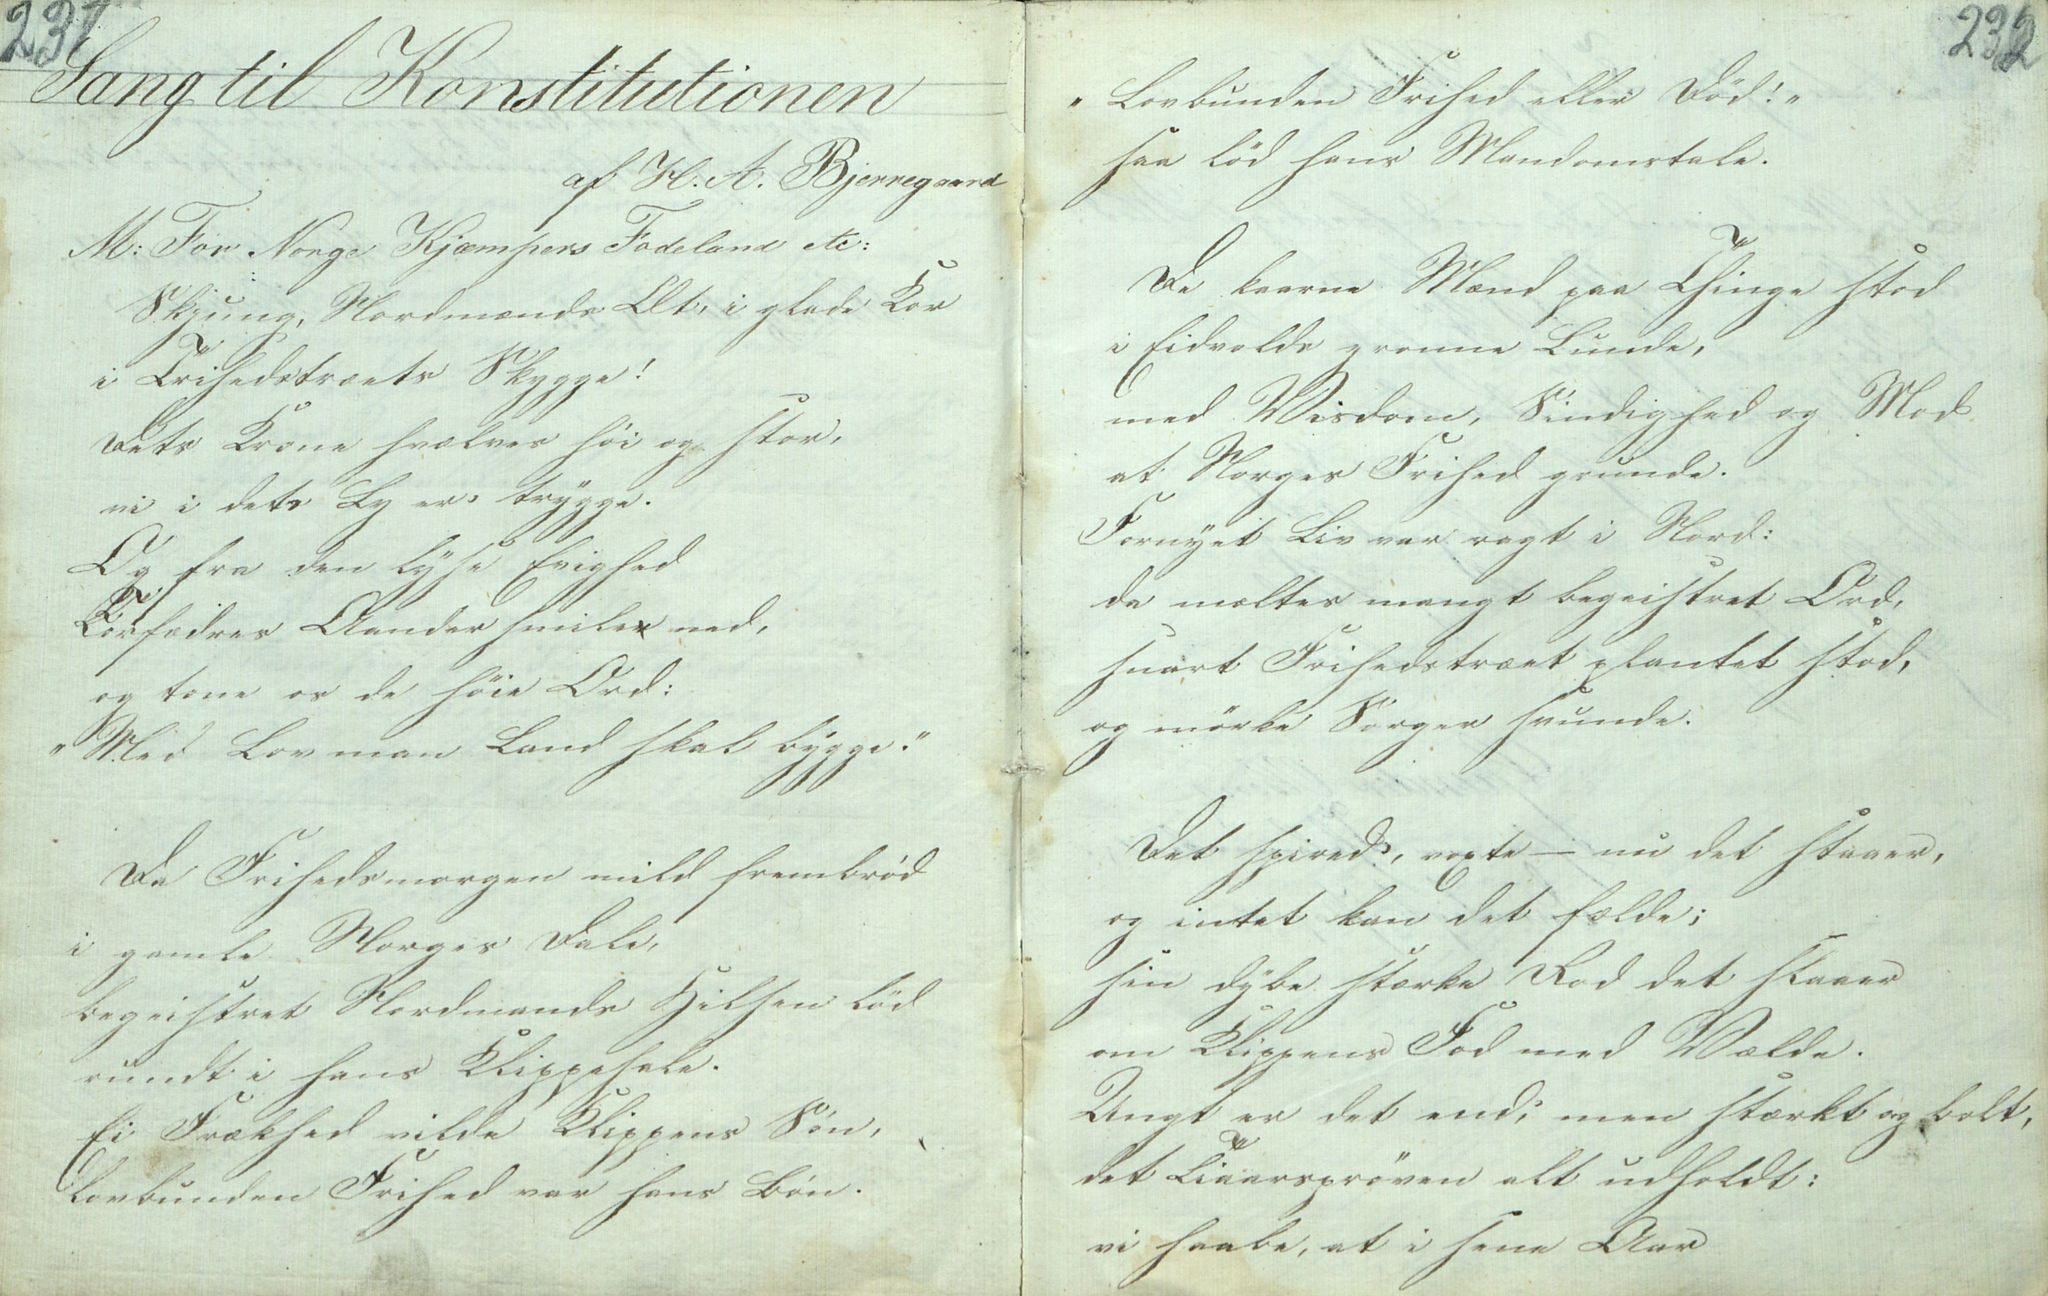 231
Sang til Konstitutionen
af H. A. Bjerregaard
M: For Norge Kjæmpers Fødeland etc:
Skjung, Nordmænds Æt, i glade Kor
i Frihedstræets Skygge!
Dets Krone hvælves høi og stor,
vi i dets Ly er' trygge.
Og fra den lyse Evighed
Forfædres Aander smile ned,
og tone os de høie Ord:
"Med Lov man Land skal bygge."
Da Frihedsmorgen mild frembrød
i gamle Norges Dale,
begeistret Nordmands Hilsen lød
rundt i hans Klippesale.
Ei Frækhed vilde Klippens Søn,
Lovbunden Frihed var hans Bøn.
232
"Lovbunden Frihed eller Død!"
saa lød hans Mandomstale.
De kaarne Mænd paa Thinge stod
i Eidvolds grønne Lunde,
med Visdom, Sindighed og Mod
at Norges Frihed grunde.
Fornyet Liv var vagt i Nord:
da mæltes mangt begeistret Ord,
snart Frihedstræet plantet stod,
og mörke Sorger svunde.
Det spired', voxte — nu det staaer,
og intet kan det fælde;
sin dybe stærke Rod det slaaer
om Klippens Fod med Vælde.
Ungt er det end, men stærkt og bolt,
det Tiaarsprøven alt udholdt:
vi haabe, at i sene Aar